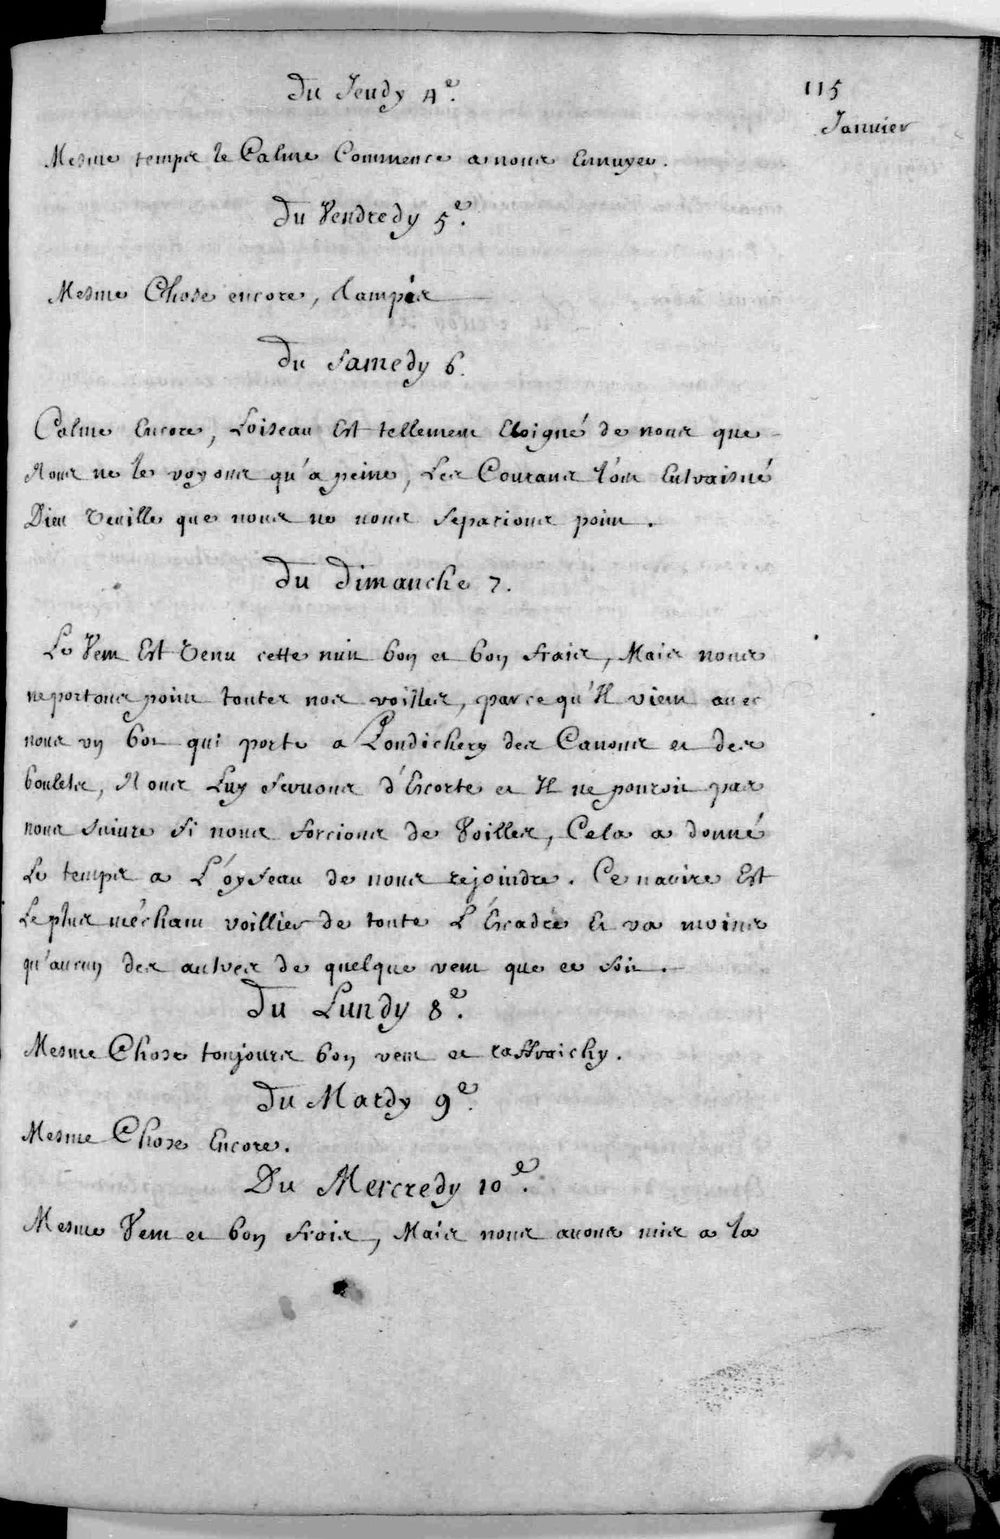 115
Janvier
Du Jeudy 4e.
Mesme temps le Calme Commence a nous Ennuyer.
Du Vendredy 5e.
Mesme Chose encore,
Du Samedy 6.
Calme Encore, Loiseau Est tellement Eloigné de nous que
Nous ne le voyons qu'a peine, Les Courans l'ont Entraisné
Dieu veuille que nous ne nous separions point.
Du dimanche 7.
Le Vent Est venu cette nuit bon et bon frais, Mais nous
ne portons point toutes nos voilles, parce qu'Il vient avec
nous un bot qui porte a Pondichery des Canons et des
boulets, Nous Luy servons d'Escorte et Il ne pouroit pas
nous suivre si nous forcions de Voilles, Cela a donné
Le temps a L'oyseau de nous rejoindre. Ce navire Est
Le plus méchant voillier de toute L'Escadre Et va moins
qu'aucun des autres de quelque vent que ce soit.
Du Lundy 8e.
Mesme Chose toujours bon vent et raffraichy.
Du Mardy 9e.
Mesme Chose Encore.
Du Mercredy 10e.
Mesme Vent et bon frais, Mais nous avons mis a la